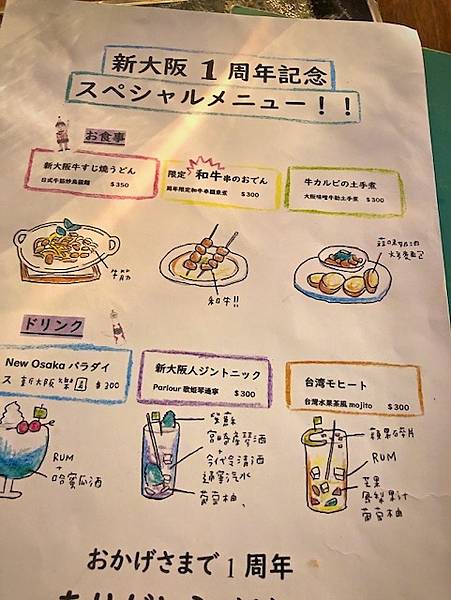 新大阪1周年記念
スペシャルメニュー！！
お食事
新大阪牛すじ焼うどん
日式牛筋炒烏龍麵 $350
限定 和牛串のおでん
周年限定和牛串關東煮 $300
牛カルビの土手煮
大阪味噌牛肋土手煮 $300
牛筋
和牛!!
蒜味奶油
烤麵包
ドリンク
New Osaka パラダイ
ス 新大阪樂園 $300
新大阪人ジントニック
Parlour 歌姬琴通寧 $300
台湾モヒート
台灣水果茶風 mojito $300
RUM
+
哈蜜瓜酒
紫蘇
宮崎産琴酒
+
今代令清酒
通寧汽水
葡萄柚
蘋果碎片
RUM
芒果
鳳梨果汁
葡萄柚
おかげさまで1周年